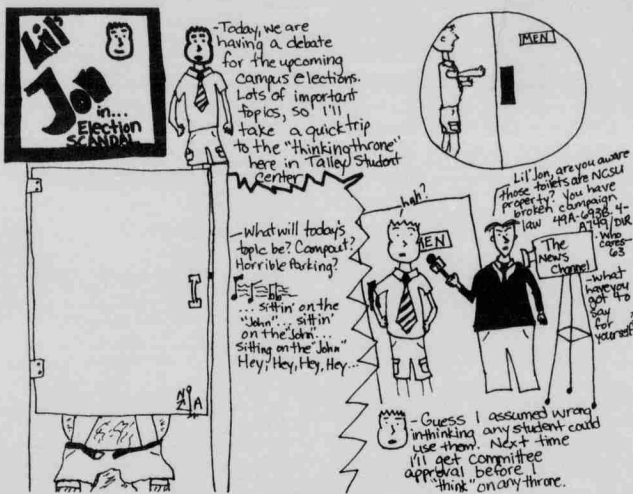 Lil'
Jon
in...
Election
SCANDAL
-Today, we are
having a debate
for the upcoming
campus elections.
Lots of important
topics, so I'll
take a quick trip
to the "thinking throne"
here in Talley Student
Center
MEN
-What will today's
topic be? Campout?
Horrible Parking?
... sittin' on the
"John"... sittin'
on the "John"...
sitting on the "John"
Hey, Hey, Hey, Hey...
huh?
MEN
Lil' Jon, are you aware
those toilets are NCSU
property? You have
broken campaign
law 49A-693B.4-
A749/DIR
-Who
cares-
63
The
News
Channel
-What
have you
got to
say
for
yourself?
-Guess I assumed wrong
in thinking any student could
use them. Next time
I'll get committee
approval before I
"think" on any throne.